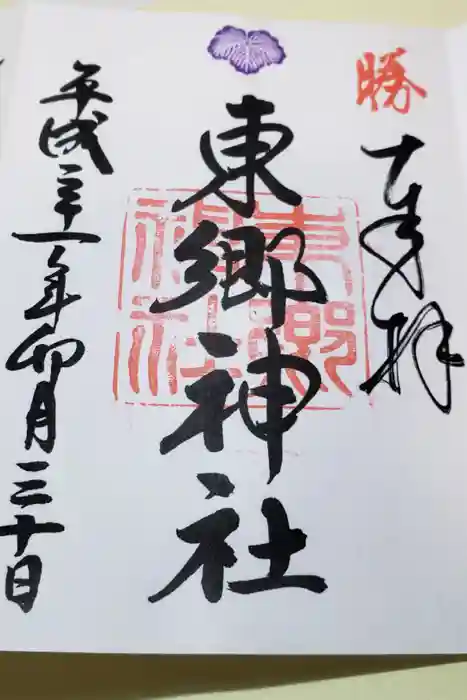 勝
奉拝
東郷神社
東郷
神社
平成三十一年卯月三十日